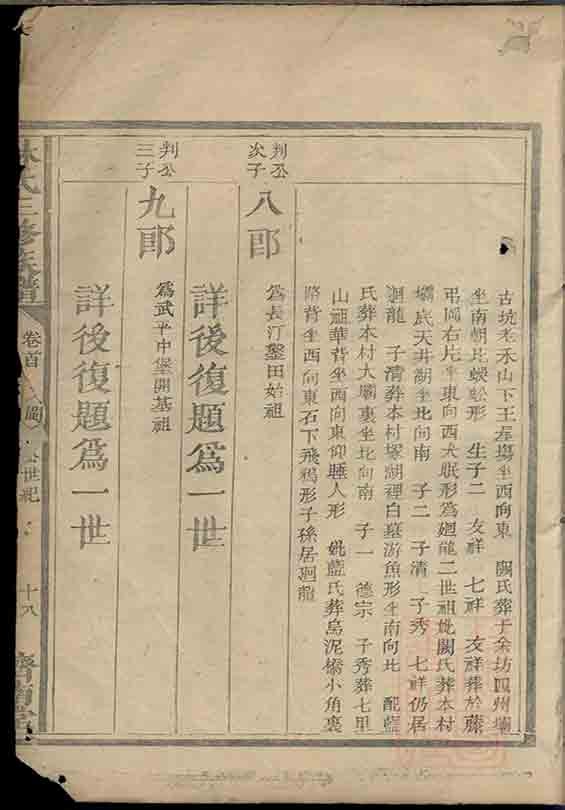 古坑老禾山下王屋塲坐西向東　闕氏葬于余坊四州壩
坐南朝北蜈蚣形　生子二　友祥　七祥　友祥葬於藤
弔岡右片坐東向西犬眠形爲廻龍二世祖妣闕氏葬本村
壩底天井湖坐北向南　子二　子清　子秀　七祥仍居
廻龍　子清葬本村塚湖裡白墓游魚形坐南向北　配藍
氏葬本村大壩裏坐北向南　子一　德宗　子秀葬七里
山祖華背坐西向東仰睡人形　妣藍氏葬烏泥墩小角裏
路背坐西向東石下飛鴉形子孫居廻龍
判公次子
八郎
爲長汀鑿田始祖
詳後復題爲一世
判公三子
九郎
爲武平中堡開基祖
詳後復題爲一世
林氏三修族譜
卷首
公世紀
十八
濟南堂